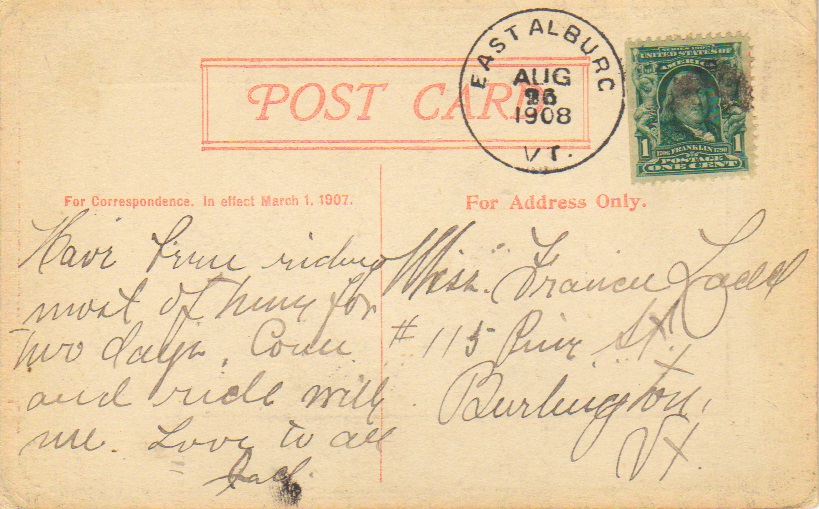 POST CARD
EAST ALBURG
AUG
26
1908
VT.
SERIES 1902
UNITED STATES OF
AMERICA
1706 FRANKLIN 1790
1 POSTAGE 1
ONE CENT
For Correspondence. In effect March 1, 1907.
Have been riding
most of time for
two days. Come
and ride with
me. Love to all
For Address Only.
Miss. Francis Ladd
# 115 Pine St.
Burlington,
Vt.